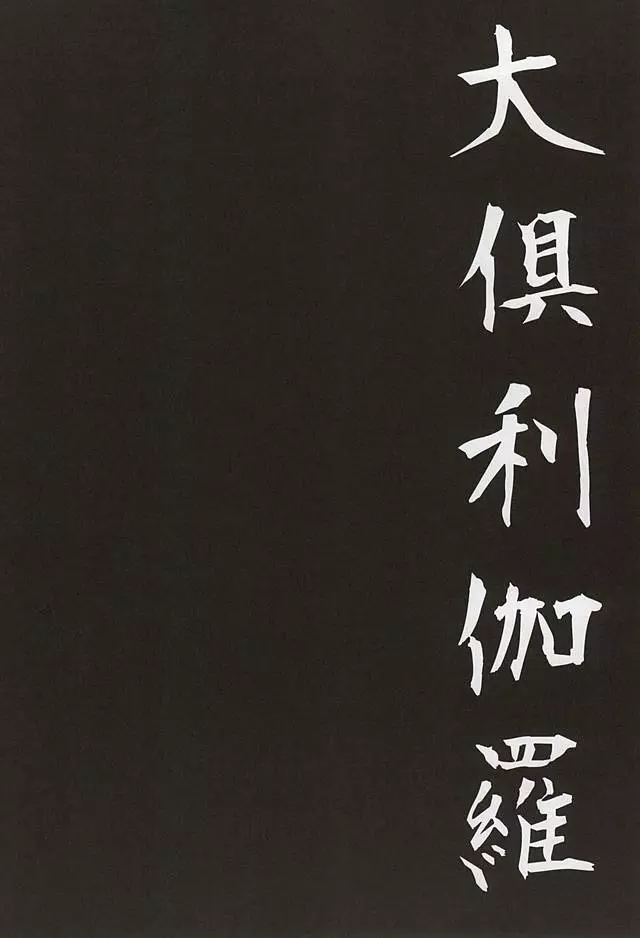 大俱利伽羅